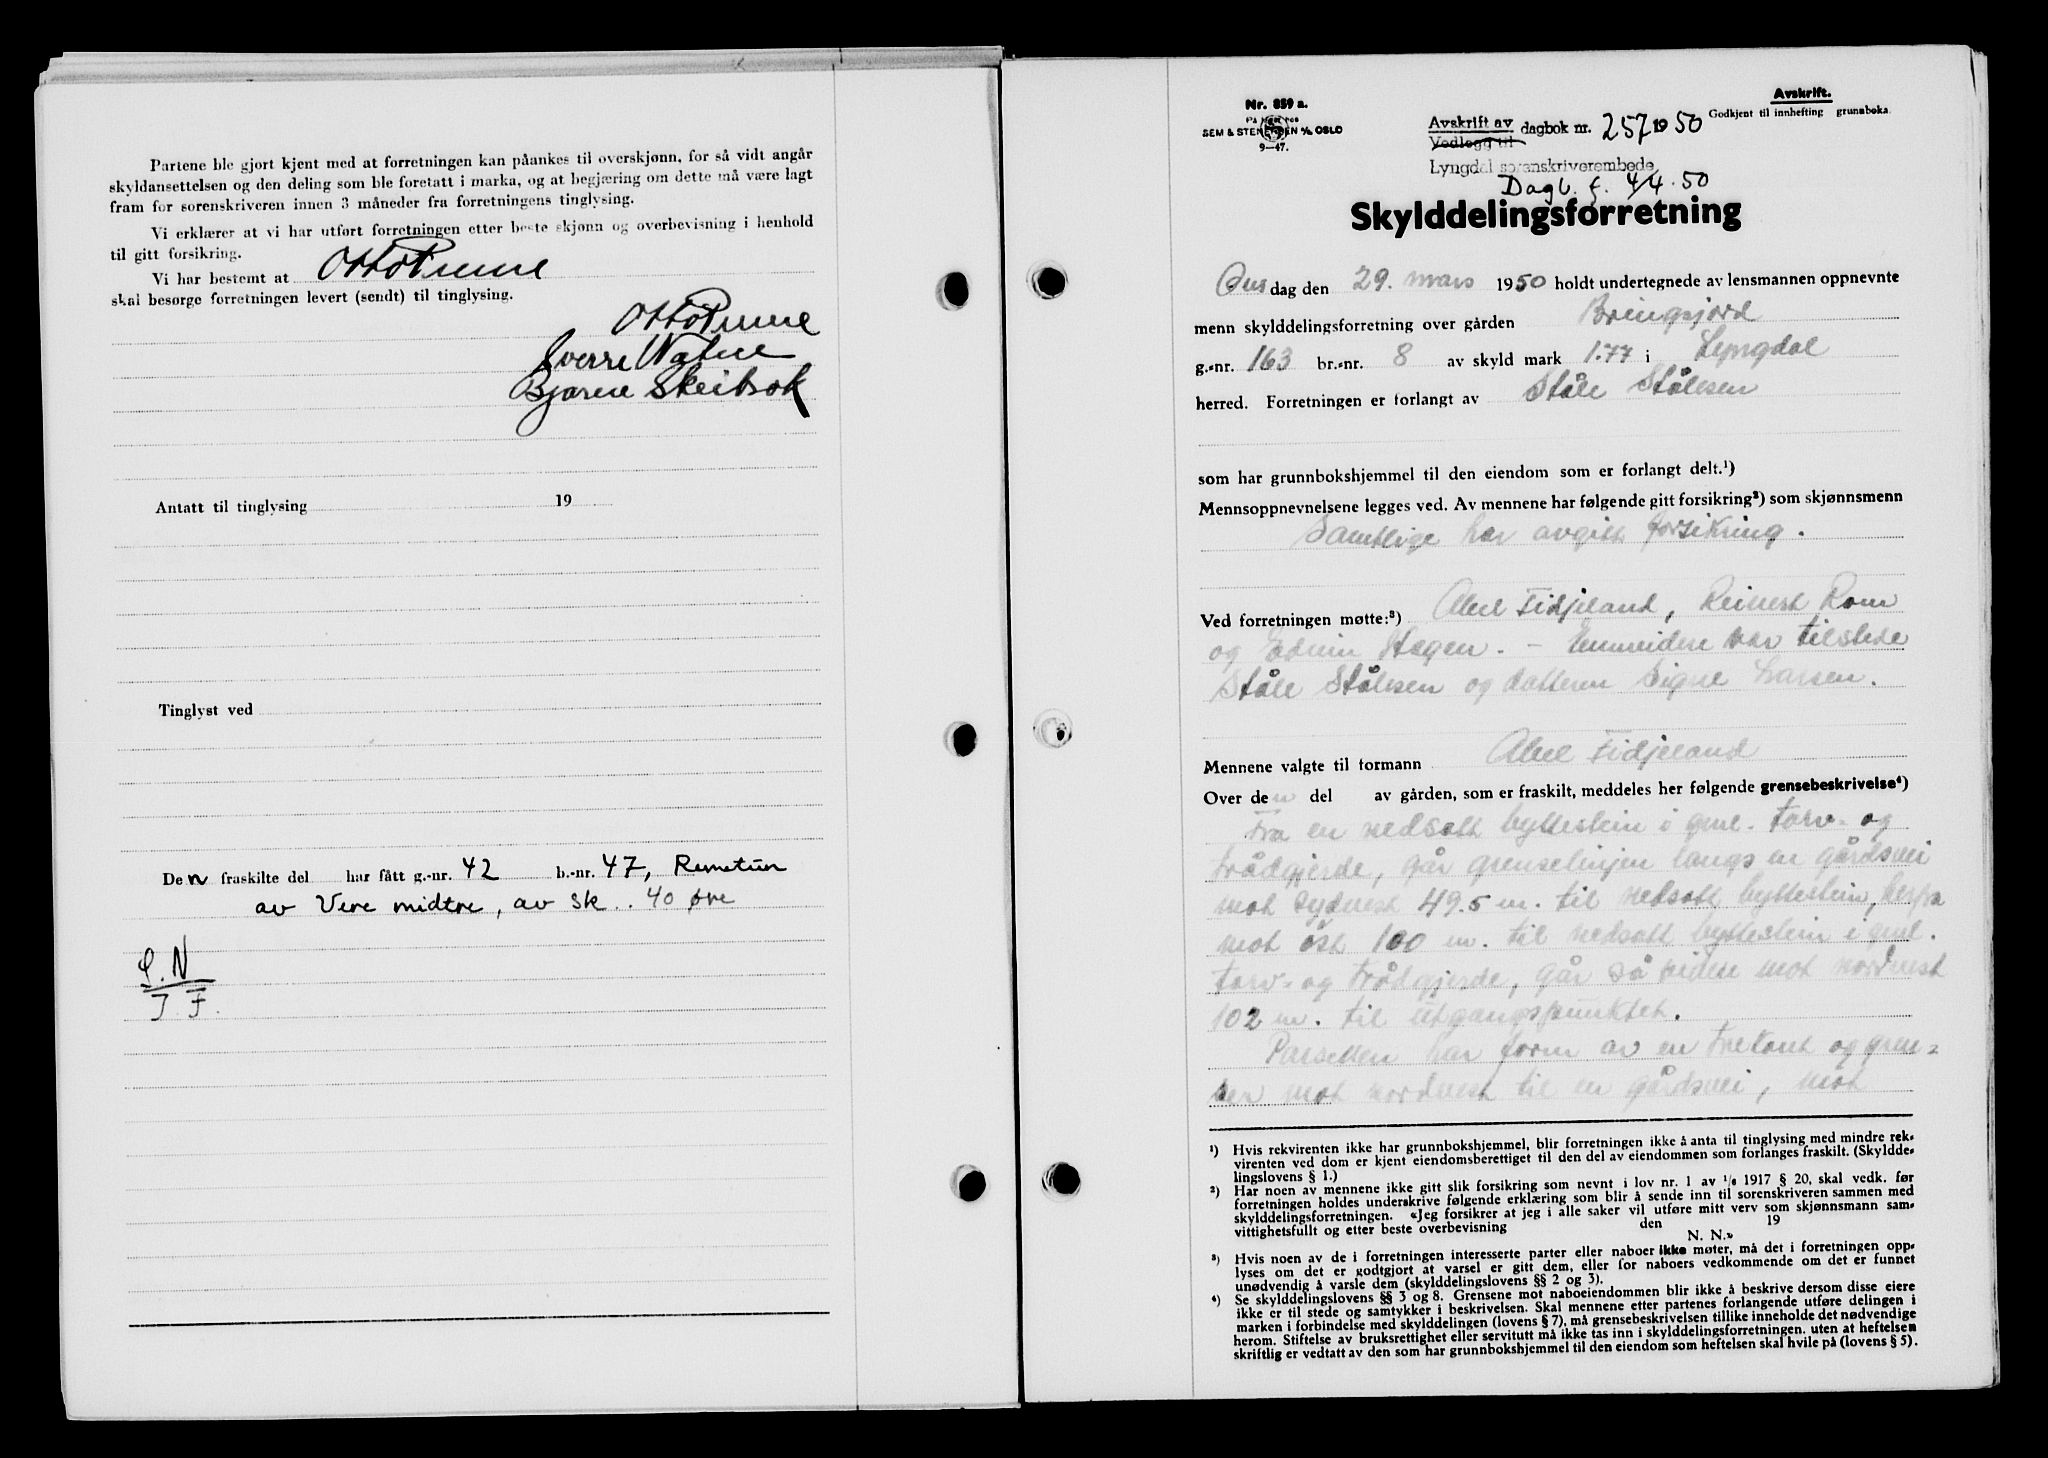 Partene ble gjort kjent med at forretningen kan påankes til overskjønn, for så vidt angår
skyldansettelsen og den deling som ble foretatt i marka, og at begjæring om dette må være lagt
fram for sorenskriveren innen 3 måneder fra forretningens tinglysing.
Vi erklærer at vi har utført forretningen etter beste skjønn og overbevisning i henhold
til gitt forsikring.
Vi har bestemt at Otto
skal besørge forretningen levert (sendt) til tinglysing.
Otto
Sverre
Bjarne Skeibrok
Antatt til tinglysing 19
Tinglyst ved
Den fraskilte del har fått g.-nr. 42 b.-nr. 47, Rometun
av Vere midtre, av sk. . 40 øre
J. F.
Nr. 859 a.
SEM & STENERSEN A/S OSLO
9—47.
Avskrift.
Godkjent til innhefting grunnboka.
Avskrift av
Vedlegg til
dagbok nr. 257 1950
Lyngdal sorenskriverembede
Dagb. f. 4/4. 50
Skylddelingsforretning
Ons dag den 29. mars 1950 holdt undertegnede av lensmannen oppnevnte
menn skylddelingsforretning over gården Bringsjord
g.-nr. 163 br.-nr. 8 av skyld mark 1.77 i Lyngdal
herred. Forretningen er forlangt av Ståle Stålesen
som har grunnbokshjemmel til den eiendom som er forlangt delt.¹)
Mennsoppnevnelsene legges ved. Av mennene har følgende gitt forsikring²) som skjønnsmenn
Samtlige har avgitt forsikring.
Ved forretningen møtte:³) Abel Fidjeland, Reinert Rom
og Edvin Hagen. – Emmvidere var tilstede
Ståle Stålesen og datteren Signe Larsen.
Mennene valgte til formann Abel Fidjeland
Over den del av gården, som er fraskilt, meddeles her følgende grensebeskrivelse⁴)
Fra en nedsatt byttestein i gml. torv- og
trådgjerde, går grenselinjen langs en gårdsvei
mot sydvest 49.5 m. til nedsatt byttestein, herfra
mot øst 100 m. til nedsatt byttestein i gml.
torv- og trådgjerde, går så videre mot nordvest
102 m. til utgangspunktet.
Parsellen har form av en trekant og gren-
ser mot nordvest til en gårdsvei, mot
¹) Hvis rekvirenten ikke har grunnbokshjemmel, blir forretningen ikke å anta til tinglysing med mindre rek-
virenten ved dom er kjent eiendomsberettiget til den del av eiendommen som forlanges fraskilt. (Skyldde-
lingslovens § 1.)
²) Har noen av mennene ikke gitt slik forsikring som nevnt i lov nr. 1 av ¹/₆ 1917 § 20, skal vedk. før
forretningen holdes underskrive følgende erklæring som blir å sende inn til sorenskriveren sammen med
skylddelingsforretningen. «Jeg forsikrer at jeg i alle saker vil utføre mitt verv som skjønnsmann sam-
vittighetsfullt og etter beste overbevisning den 19
N. N.»
³) Hvis noen av de i forretningen interesserte parter eller naboer ikke møter, må det i forretningen opp-
lyses om det er godtgjort at varsel er gitt dem, eller for naboers vedkommende om det er funnet
unødvendig å varsle dem (skylddelingslovens §§ 2 og 3).
⁴) Se skylddelingslovens §§ 3 og 8. Grensene mot naboeiendommen blir ikke å beskrive dersom disse eiere
ikke er til stede og samtykker i beskrivelsen. Skal mennene etter partenes forlangende utføre delingen i
marken i forbindelse med skylddelingen (lovens § 7), må grensebeskrivelsen tillike inneholde det nødvendige
herom. Stiftelse av bruksrettighet eller servitutt må ikke tas inn i skylddelingsforretningen, uten at heftelsen
skriftlig er vedtatt av den som har grunnbokshjemmel til den eiendom som heftelsen skal hvile på (lovens § 5).